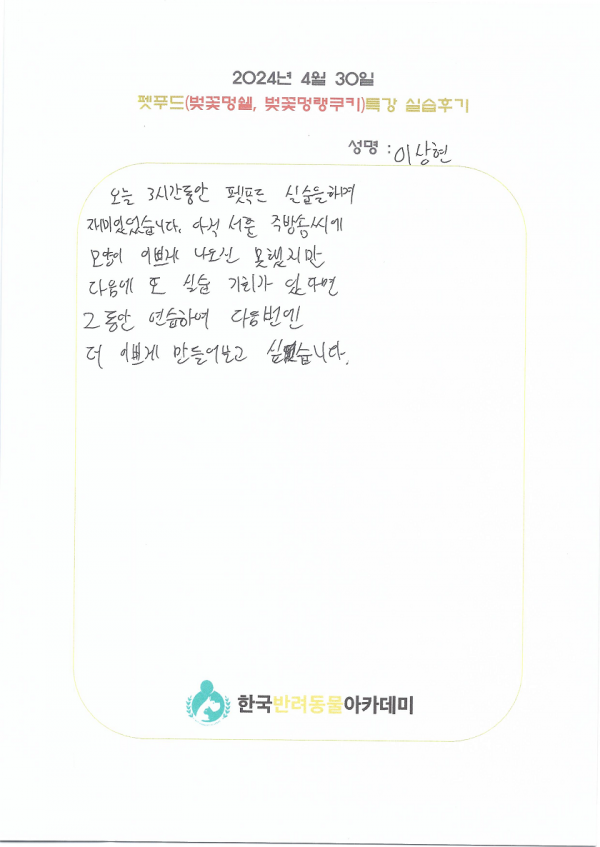 2024년 4월 30일
펫푸드(벚꽃멍쉘, 벚꽃멍랭쿠키)특강 실습후기
성명 : 이상현
오늘 3시간동안 펫푸드 실습을하며
재미있었습니다. 아직 서툰 주방솜씨에
모양이 이쁘게 나오진 못했지만
다음에 또 실습 기회가 있다면
그동안 연습하여 다음번엔
더 이쁘게 만들어보고 싶습니다.
한국반려동물아카데미